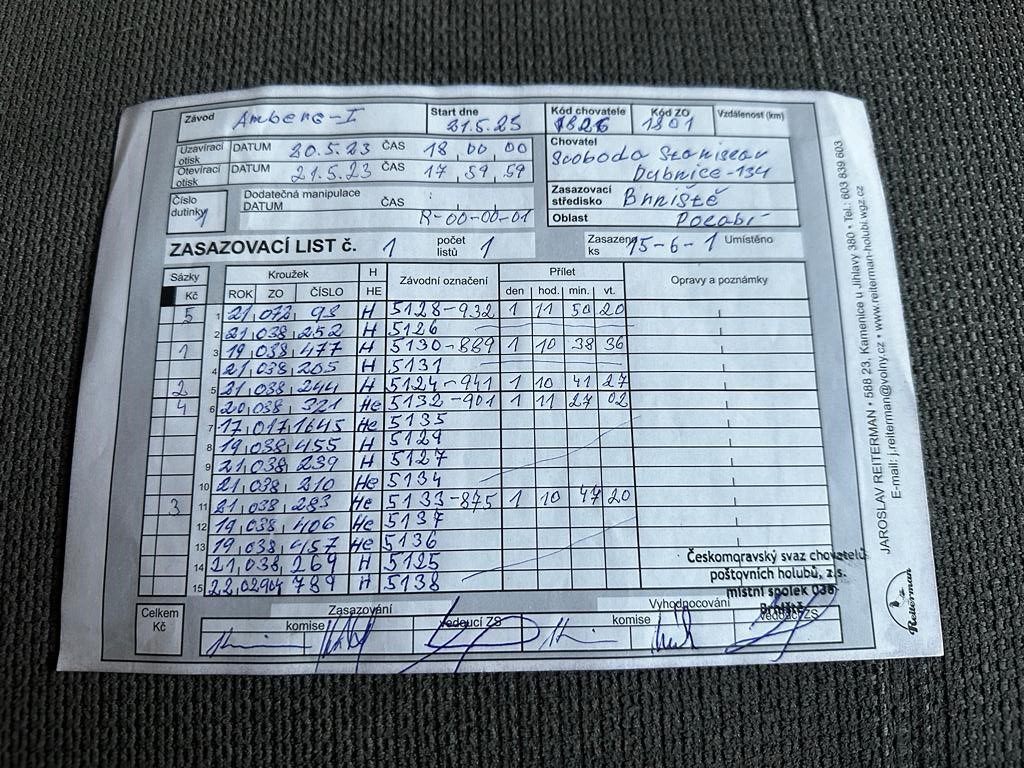 Závod Amberg-I Start dne 21.5.23 Kód chovatele 1826 Kód ZO 1801 Vzdálenost (km)
Uzavírací otisk DATUM 20.5.23 ČAS 18 00 00
Otevírací otisk DATUM 21.5.23 ČAS 17 59 59
Chovatel Svoboda Stanislav
Dubnice-134
Číslo dutinky 1 Dodatečná manipulace DATUM ČAS
R-00-00-01
Zasazovací středisko Brniště
Oblast
ZASAZOVACÍ LIST č. 1 počet listů 1 Zasazeno ks 15-6-1 Umístěno
Sázky Kč Kroužek ROK ZO ČÍSLO H HE Závodní označení Přílet den hod. min. vt. Opravy a poznámky
5 1 21 072 98 H 5128-932 1 11 50 20
2 21 038 252 H 5126
1 3 19 038 477 H 5130-889 1 10 38 36
4 21 038 205 H 5131
2 5 21 038 244 H 5124-941 1 10 41 27
4 6 20 038 321 He 5132-901 1 11 27 02
7 17 017 1645 He 5135
8 19 038 455 H 5129
9 21 038 239 H 5127
10 21 038 210 He 5134
3 11 21 038 283 He 5133-875 1 10 47 20
12 19 038 406 He 5137
13 19 038 457 He 5136
14 21 038 269 H 5125
15 22 02904 789 H 5138
Českomoravský svaz chovatelů
poštovních holubů, z.s.
místní spolek 038
Brniště
Celkem Kč Zasazování Vyhodnocování
komise vedoucí ZS komise vedoucí ZS
JAROSLAV REITERMAN • 588 23, Kamenice u Jihlavy 380 • Tel.: 603 839 603
E-mail: j.reiterman@volny.cz • www.reiterman-holubi.wgz.cz
Reiterman